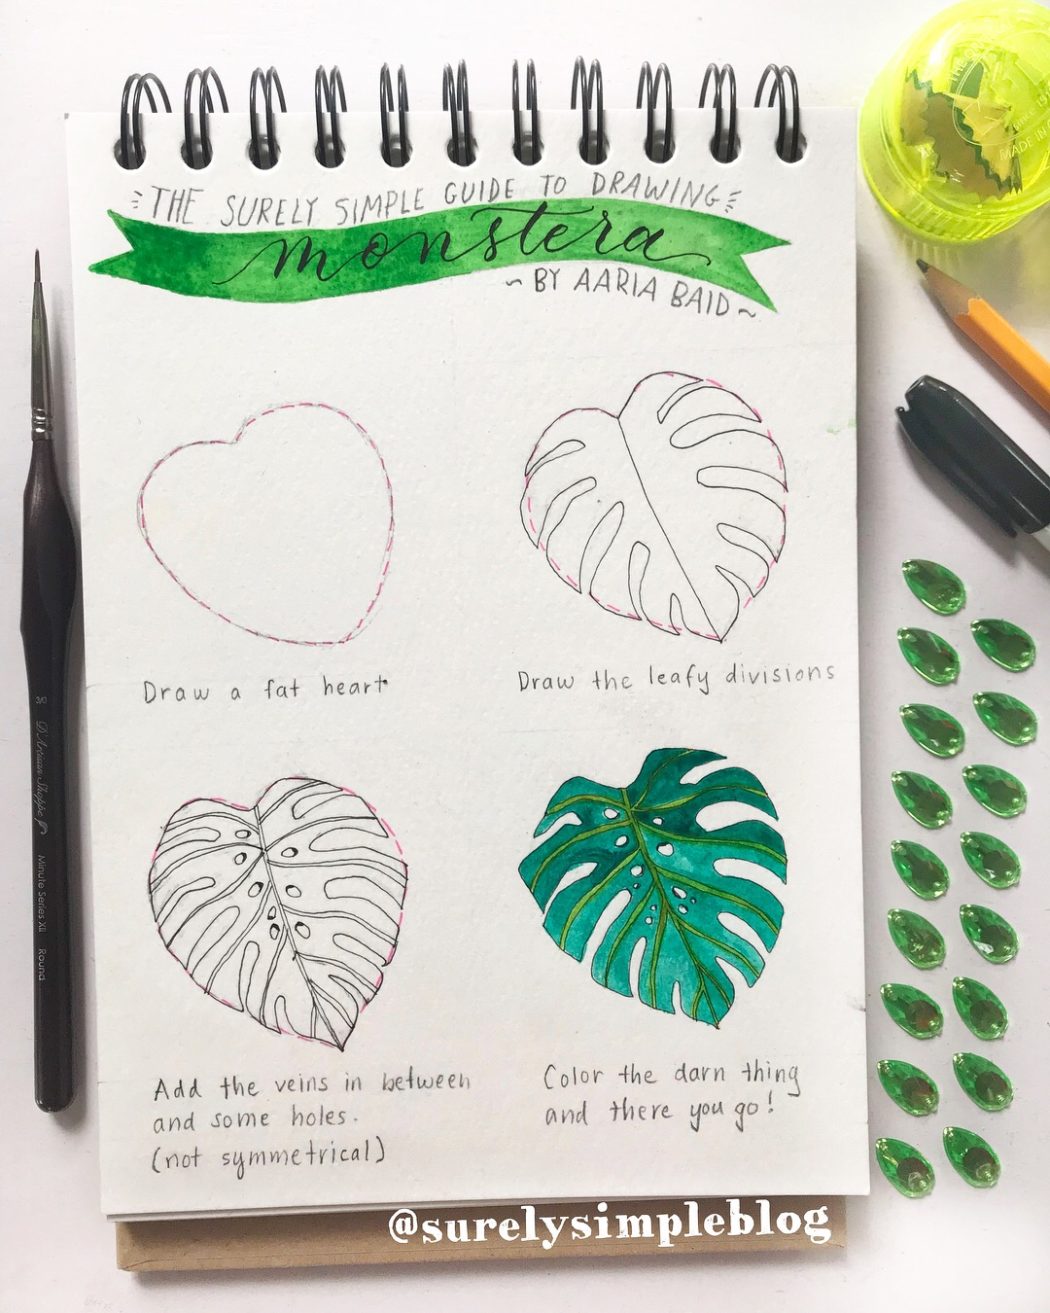 THE SURELY SIMPLE GUIDE TO DRAWING
monstera
~ BY AARIA BAID ~
Draw a fat heart
Draw the leafy divisions
Add the veins in between
and some holes.
(not symmetrical)
Color the darn thing
and there you go!
@surelysimpleblog
D'Artisan Shoppe
Minute Series XII
Round
MADE IN